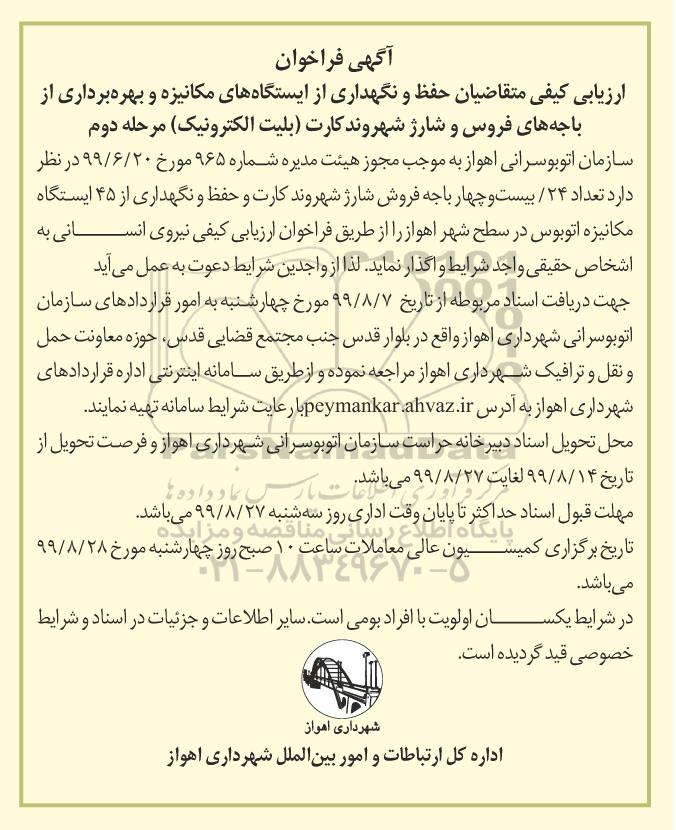 آگهی فراخوان
ارزیابی کیفی متقاضیان حفظ و نگهداری از ایستگاه‌های مکانیزه و بهره‌برداری از
باجه‌های فروس و شارژ شهروندکارت (بلیت الکترونیک) مرحله دوم
سازمان اتوبوسرانی اهواز به موجب مجوز هیئت مدیره شماره ۹۶۵ مورخ ۹۹/۶/۲۰ در نظر
دارد تعداد ۲۴/ بیست‌وچهار باجه فروش شارژ شهروند کارت و حفظ و نگهداری از ۴۵ ایستگاه
مکانیزه اتوبوس در سطح شهر اهواز را از طریق فراخوان ارزیابی کیفی نیروی انسانی به
اشخاص حقیقی واجد شرایط واگذار نماید. لذا از واجدین شرایط دعوت به عمل می‌آید
جهت دریافت اسناد مربوطه از تاریخ ۹۹/۸/۷ مورخ چهارشنبه به امور قراردادهای سازمان
اتوبوسرانی شهرداری اهواز واقع در بلوار قدس جنب مجتمع قضایی قدس، حوزه معاونت حمل
و نقل و ترافیک شهرداری اهواز مراجعه نموده و ازطریق سامانه اینترنتی اداره قراردادهای
شهرداری اهواز به آدرس peymankar.ahvaz.ir با رعایت شرایط سامانه تهیه نمایند.
محل تحویل اسناد دبیرخانه حراست سازمان اتوبوسرانی شهرداری اهواز و فرصت تحویل از
تاریخ ۹۹/۸/۱۴ لغایت ۹۹/۸/۲۷ می‌باشد.
مهلت قبول اسناد حداکثر تا پایان وقت اداری روز سه‌شنبه ۹۹/۸/۲۷ می‌باشد.
تاریخ برگزاری کمیسیون عالی معاملات ساعت ۱۰ صبح روز چهارشنبه مورخ ۹۹/۸/۲۸
می‌باشد.
در شرایط یکسان اولویت با افراد بومی است.سایر اطلاعات و جزئیات در اسناد و شرایط
خصوصی قید گردیده است.
شهرداری اهواز
اداره کل ارتباطات و امور بین‌الملل شهرداری اهواز
ParsNamadData
مرکز فرآوری اطلاعات پارس نماد داده ها
پایگاه اطلاع رسانی مناقصه و مزایده
۰۲۱-۸۸۳۴۹۶۷۰-۵